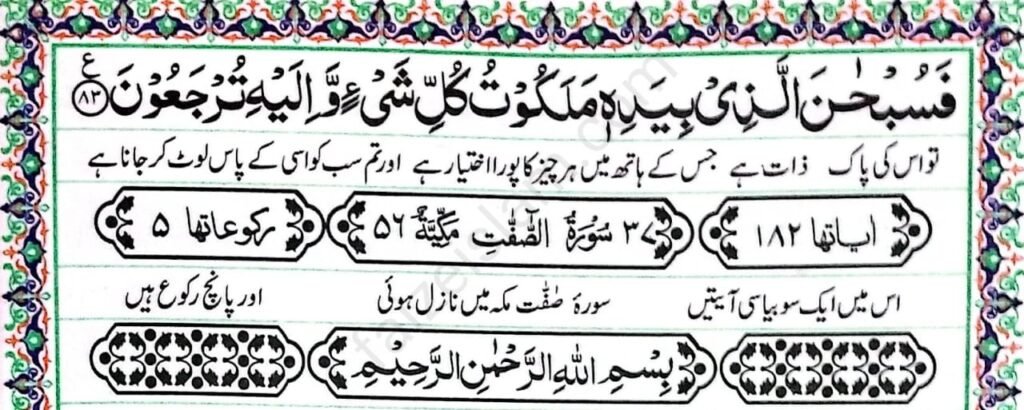 فَسُبْحٰنَ الَّذِیْ بِیَدِهٖ مَلَكُوْتُ كُلِّ شَیْءٍ وَّ اِلَیْهِ تُرْجَعُوْنَ ﴿۸۳﴾ ع
تو اس کی پاک ذات ہے جس کے ہاتھ میں ہر چیز کا پورا اختیار ہے اور تم سب کو اسی کے پاس لوٹ کر جانا ہے
اٰیاتھا ۱۸۲ ۳۷ سُوْرَةُ الصّٰفّٰتِ مَكِّیَّةٌ ۵۶ رکوعاتھا ۵
اس میں ایک سو بیاسی آیتیں سورۂ صٰفّٰت مکہ میں نازل ہوئی اور پانچ رکوع ہیں
بِسْمِ اللهِ الرَّحْمٰنِ الرَّحِیْمِ